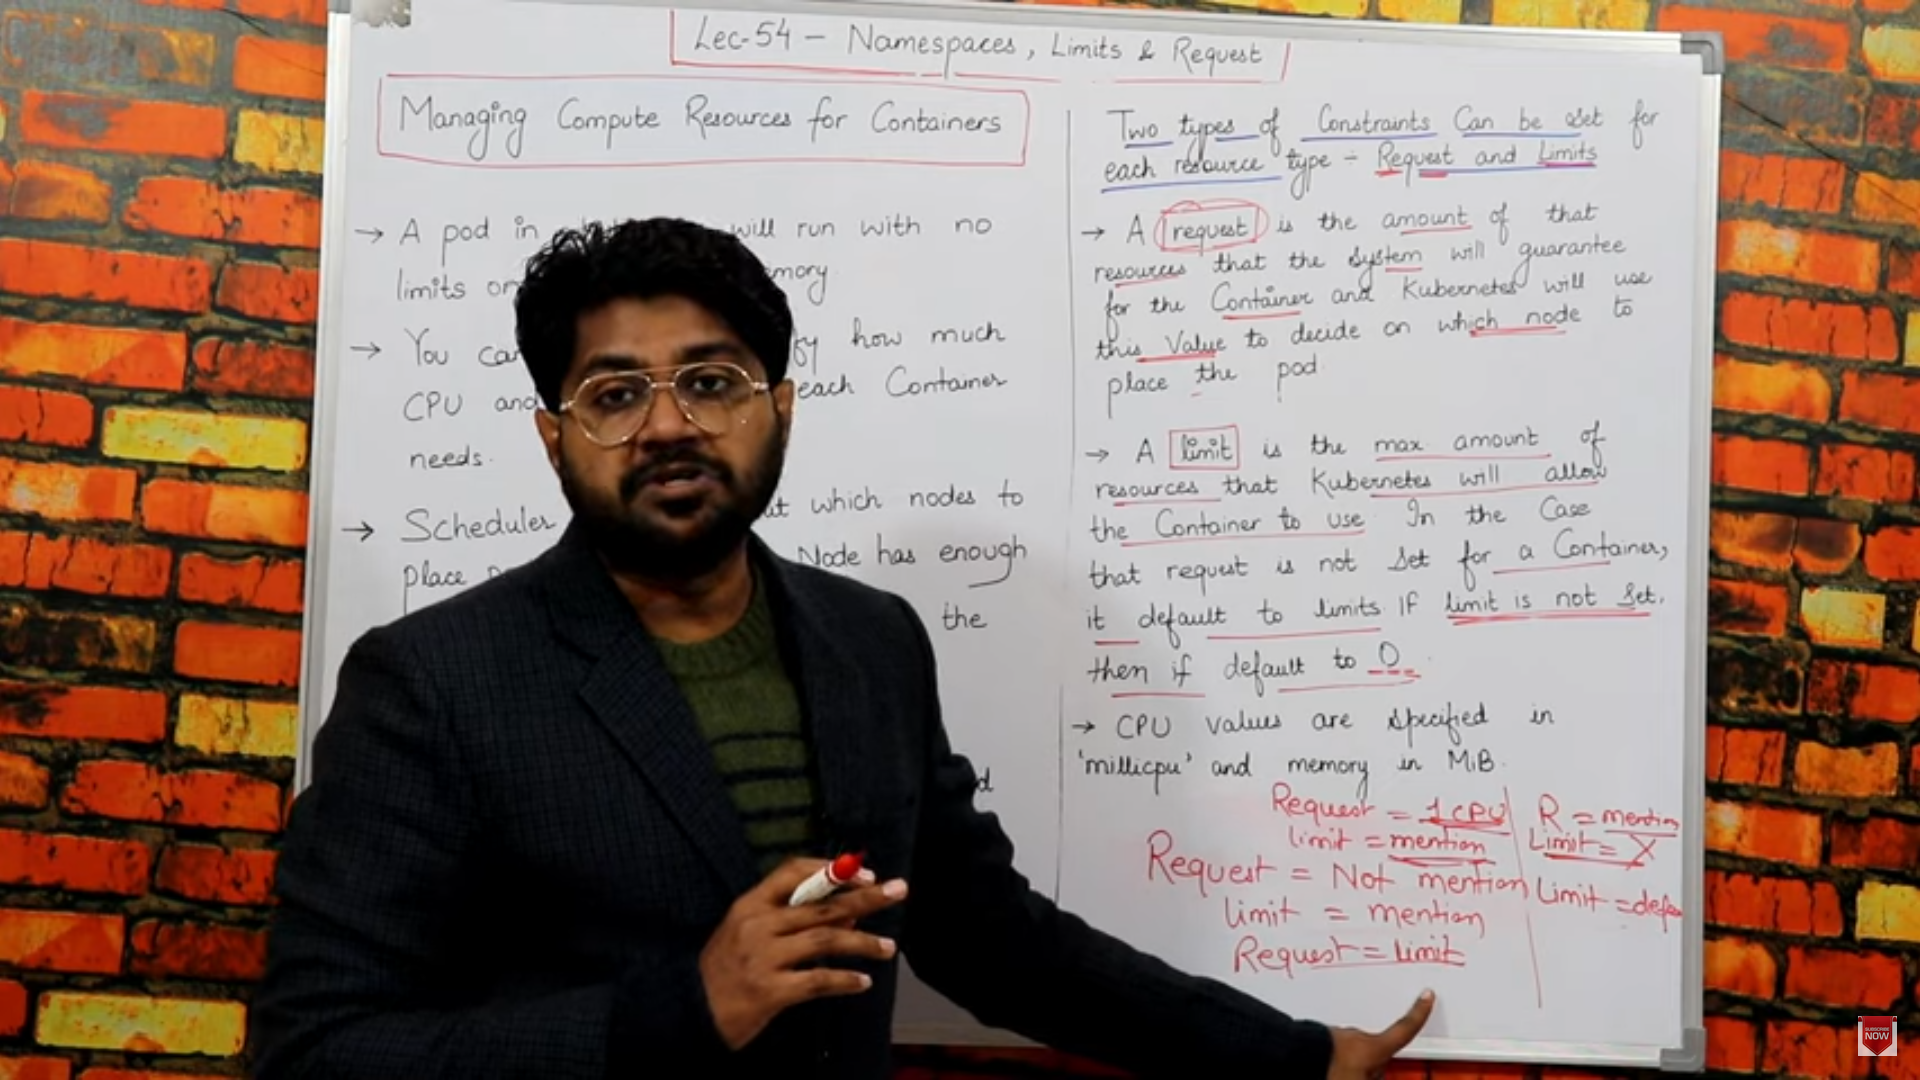 Lec-54 - Namespaces, Limits & Request
Managing Compute Resources for Containers
→ A pod in will run with no
limits on memory
→ You can how much
CPU and each Container
needs.
→ Scheduler which nodes to
place Node has enough
the
Two types of Constraints Can be set for
each resource type - Request and Limits
→ A request is the amount of that
resources that the system will guarantee
for the Container and Kubernetes will use
this Value to decide on which node to
place the pod
→ A limit is the max amount of
resources that Kubernetes will allow
the Container to use. In the Case
that request is not set for a Container,
it default to limits. IF limit is not set,
then if default to 0.
→ CPU values are specified in
'millicpu' and memory in MiB.
Request = 1 CPU
limit = mention
Request = Not mention
limit = mention
Request = limit
R = mention
Limit = X
Limit =
SUBSCRIBE
NOW